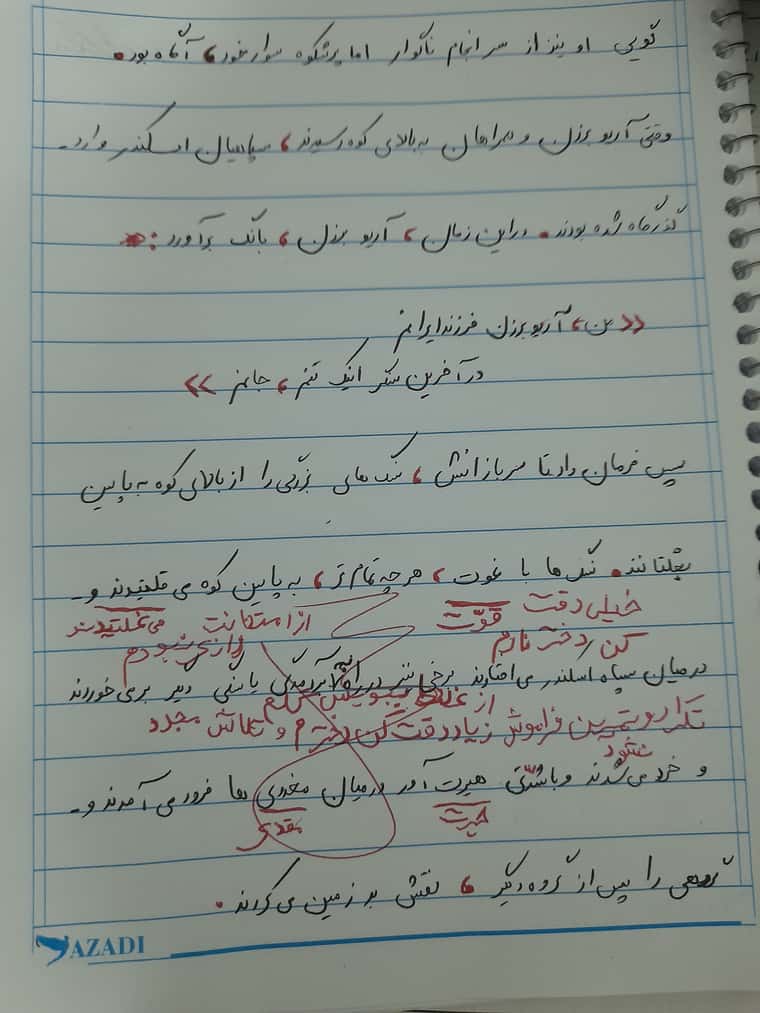 گویی او نیز از سرانجام ناگوار اما پرشکوه سوار خود، آگاه بود.
وقتی آریو برزن و همراهان به بالای کوه رسیدند، سپاهیان اسکندر وارد
گذرگاه شده بودند. در این زمان، آریو برزن، بانگ برآورد:
«من، آریو برزن فرزند ایرانم
در آخرین سنگر اینک تنم، جانم»
پس فرمان داد تا سربازانش، سنگ‌های بزرگی را از بالای کوه به پایین
بغلتانند. سنگ‌ها با غوت، هر چه تمام‌تر، به پایین کوه می قلتیدند و
خیلی دقت قوّت می‌غلتیدند
کن دخترم
در میان سپاه اسکندر می‌افتادند برخی نیز در راه یا سنگی دیگر بر می‌خوردند
تکرار و تمرین فراموش نشود زیاد دقت کن دخترم و تلاش مجدد
و خرد می‌شدند و با شدّتی هیرت آور در میان مغدونی ها فرود می آمدند و
حیرت
گروهی را پس از گروه دیگر، نقش بر زمین می‌کردند.
AZADI